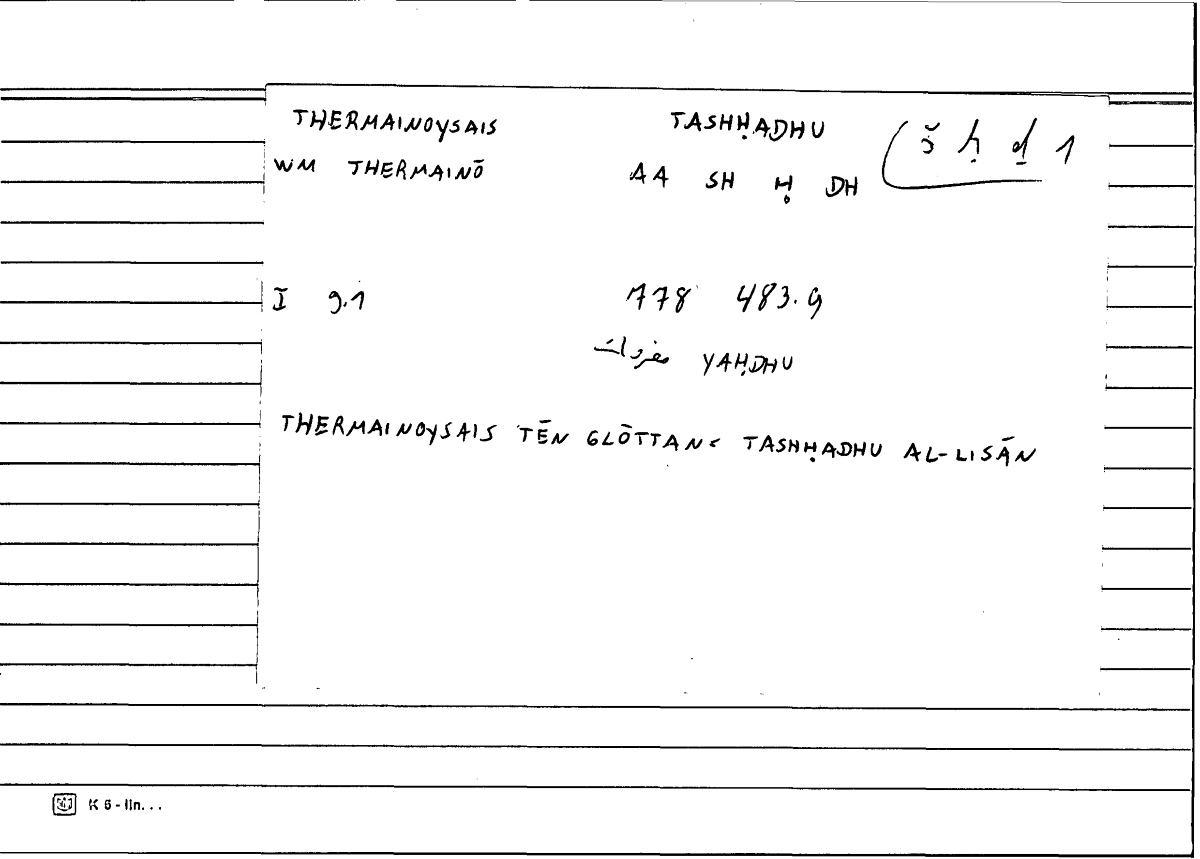 THERMAINOYSAIS TASHḤADHU š ḥ ḏ 1
WM THERMAINŌ AA SH Ḥ DH
I 9.1 778 483.9
مفردات YAḤDHU
THERMAINOYSAIS TĒN GLŌTTAN< TASHḤADHU AL-LISĀN
K 6 - lin...